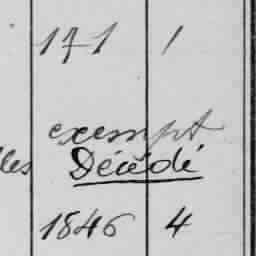 171 1
exempt
les Décédé
1846 4